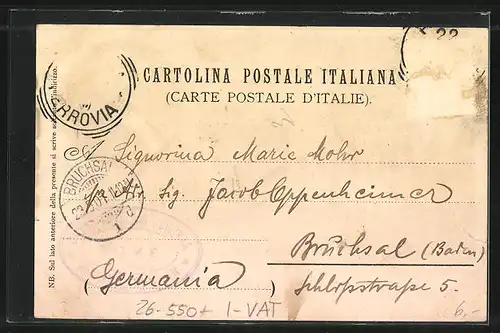 22
CARTOLINA POSTALE ITALIANA
(CARTE POSTALE D'ITALIE).
ERROVIA
NB. Sul lato anteriore della presente si scrive soltanto l'indirizzo.
A Signorina Marie Mohr
BRUCHSAL
Sig. Jacob Oppenheimer
Bruchsal (Baden)
(Germania) Schloßstrasse 5.
26-550+ 1-VAT
6,-